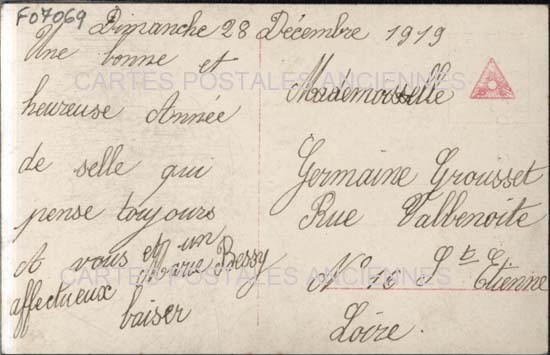 F07069
Dimanche 28 Décembre 1919
Une bonne et
heureuse Année
de selle qui
pense toujours
A vous et un
Marie Bessy
affectueux
baiser
Mademoiselle
Germaine Grousset
Rue Valbenoite
N° 16 St Etienne
Loire.
CARTES POSTALES ANCIENNES
CARTES POSTALES ANCIENNES